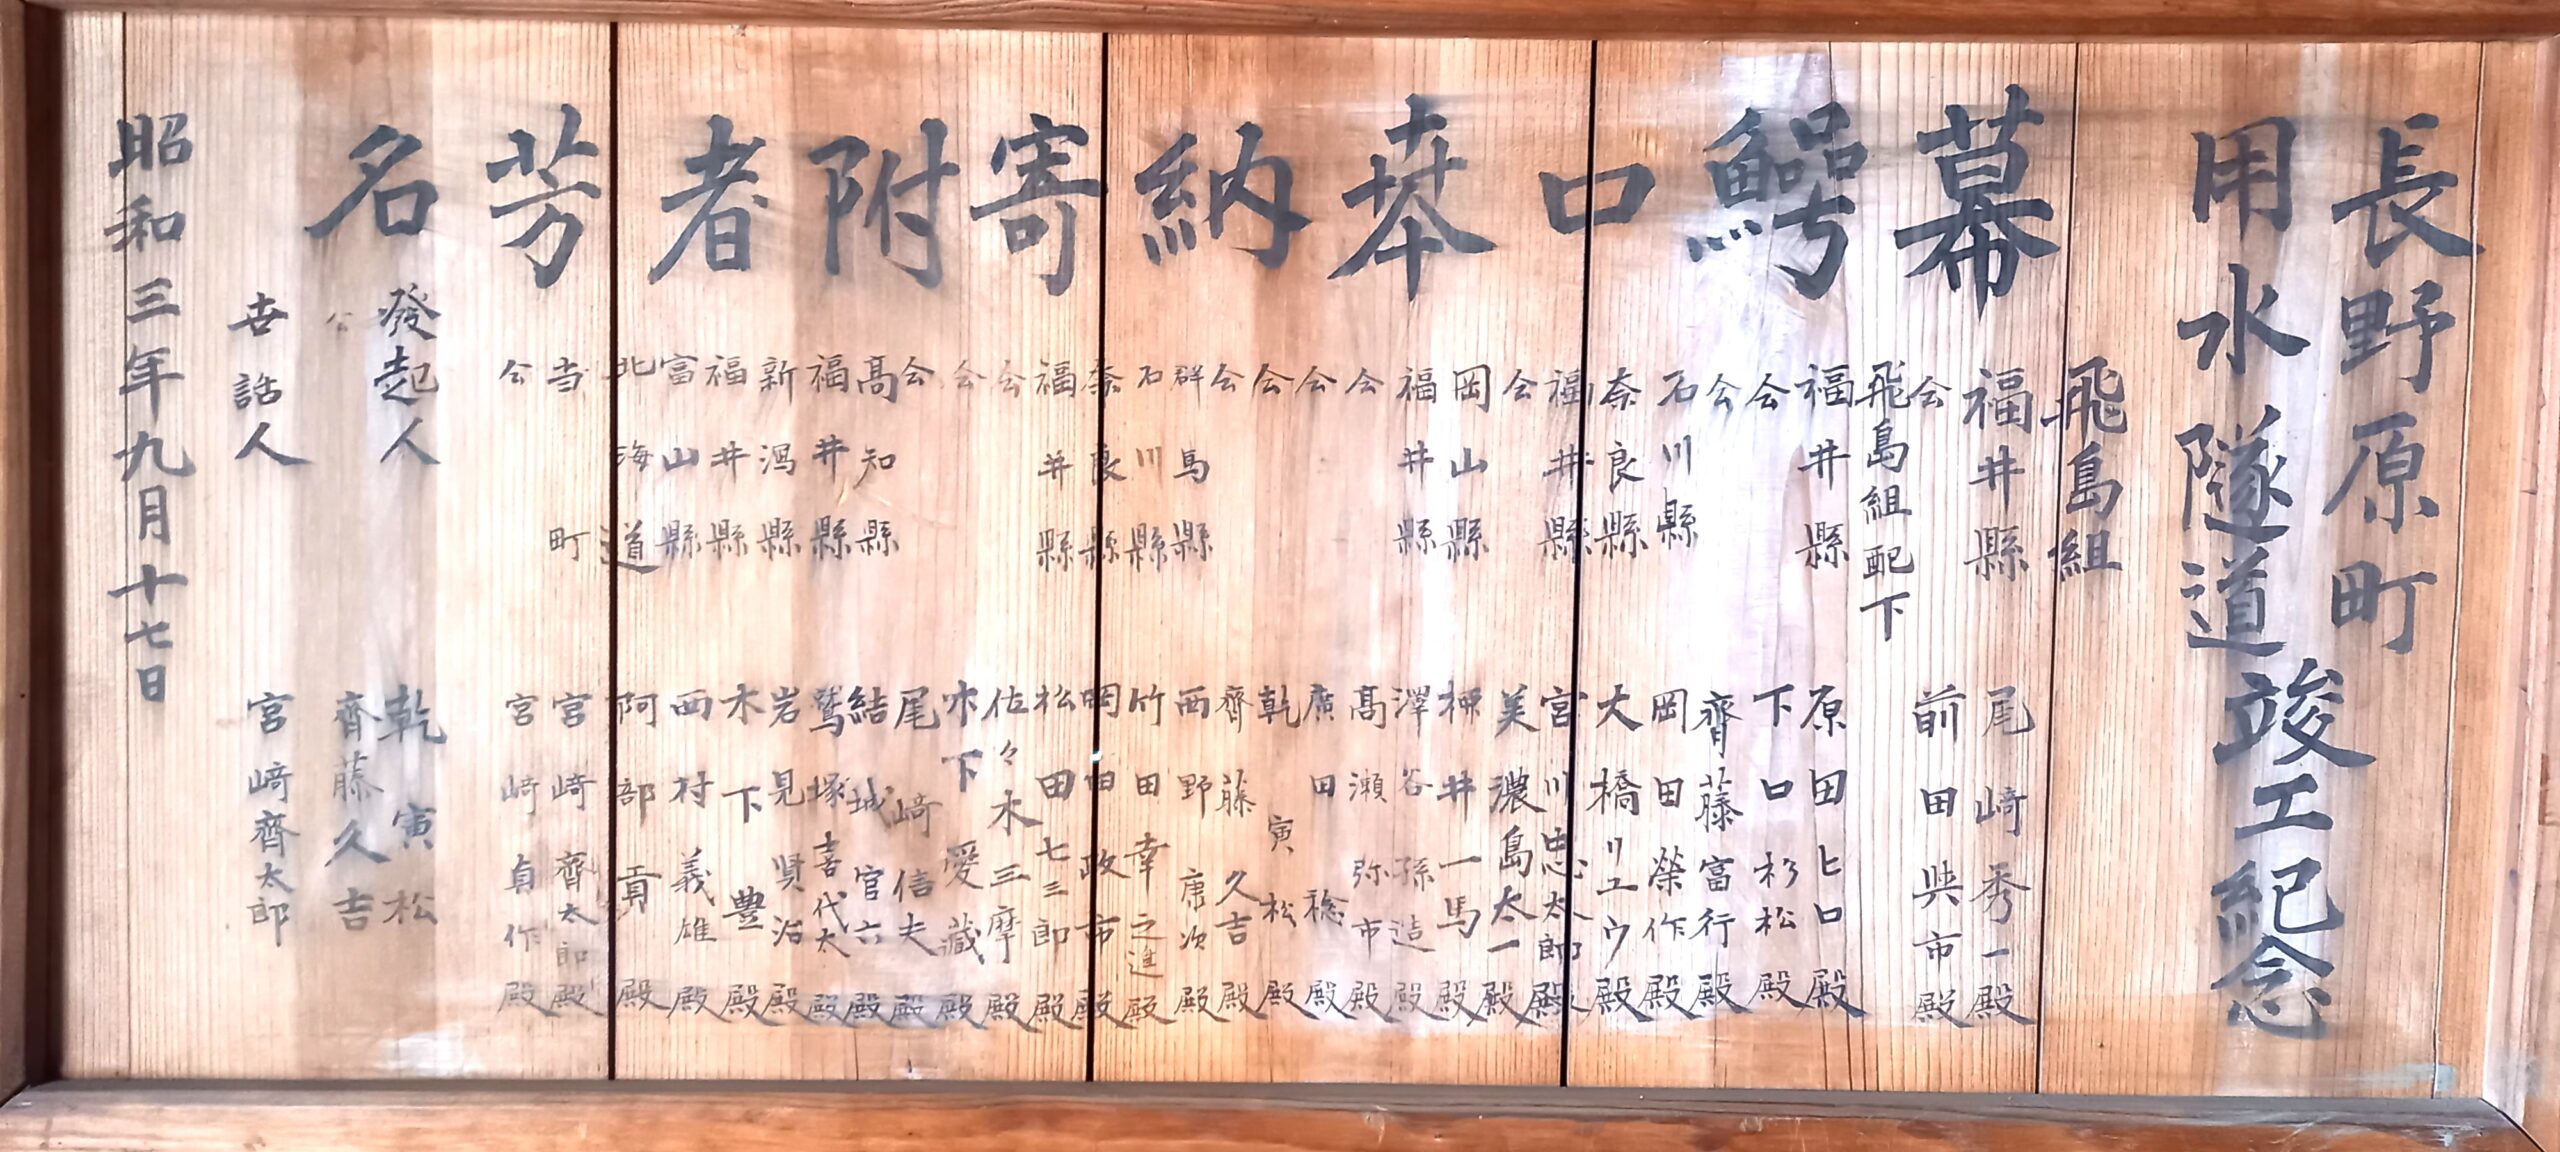 長野原町
用水隧道竣工紀念
幕鰐口奉納寄附者芳名
飛島組
福井縣 尾﨑秀一殿
仝 前田與市殿
飛島組配下
福井縣 原田ヒロ殿
仝 下口杉松殿
仝 齊藤富行殿
石川縣 岡田榮作殿
奈良縣 大橋リエウ殿
福井縣 宮川忠太郎殿
仝 美濃島太一殿
岡山縣 柵井一馬殿
福井縣 澤谷孫造殿
仝 髙瀬弥市殿
仝 廣田稔殿
仝 乾寅松殿
仝 齊藤久吉殿
群馬縣 西野康次殿
石川縣 竹田幸之進殿
奈良縣 岡田政市殿
福井縣 松田七三郎殿
仝 佐々木三摩殿
仝 木下愛藏殿
仝 尾﨑信夫殿
髙知縣 結城官六殿
福井縣 鷲塚喜代太殿
新潟縣 岩見賢治殿
福井縣 木下豊殿
富山縣 西村義雄殿
北海道 阿部貢殿
当町 宮﨑齊太郎殿
仝 宮﨑貞作殿
發起人 乾寅松
仝 齊藤久吉
世話人 宮﨑齊太郎
昭和三年九月十七日